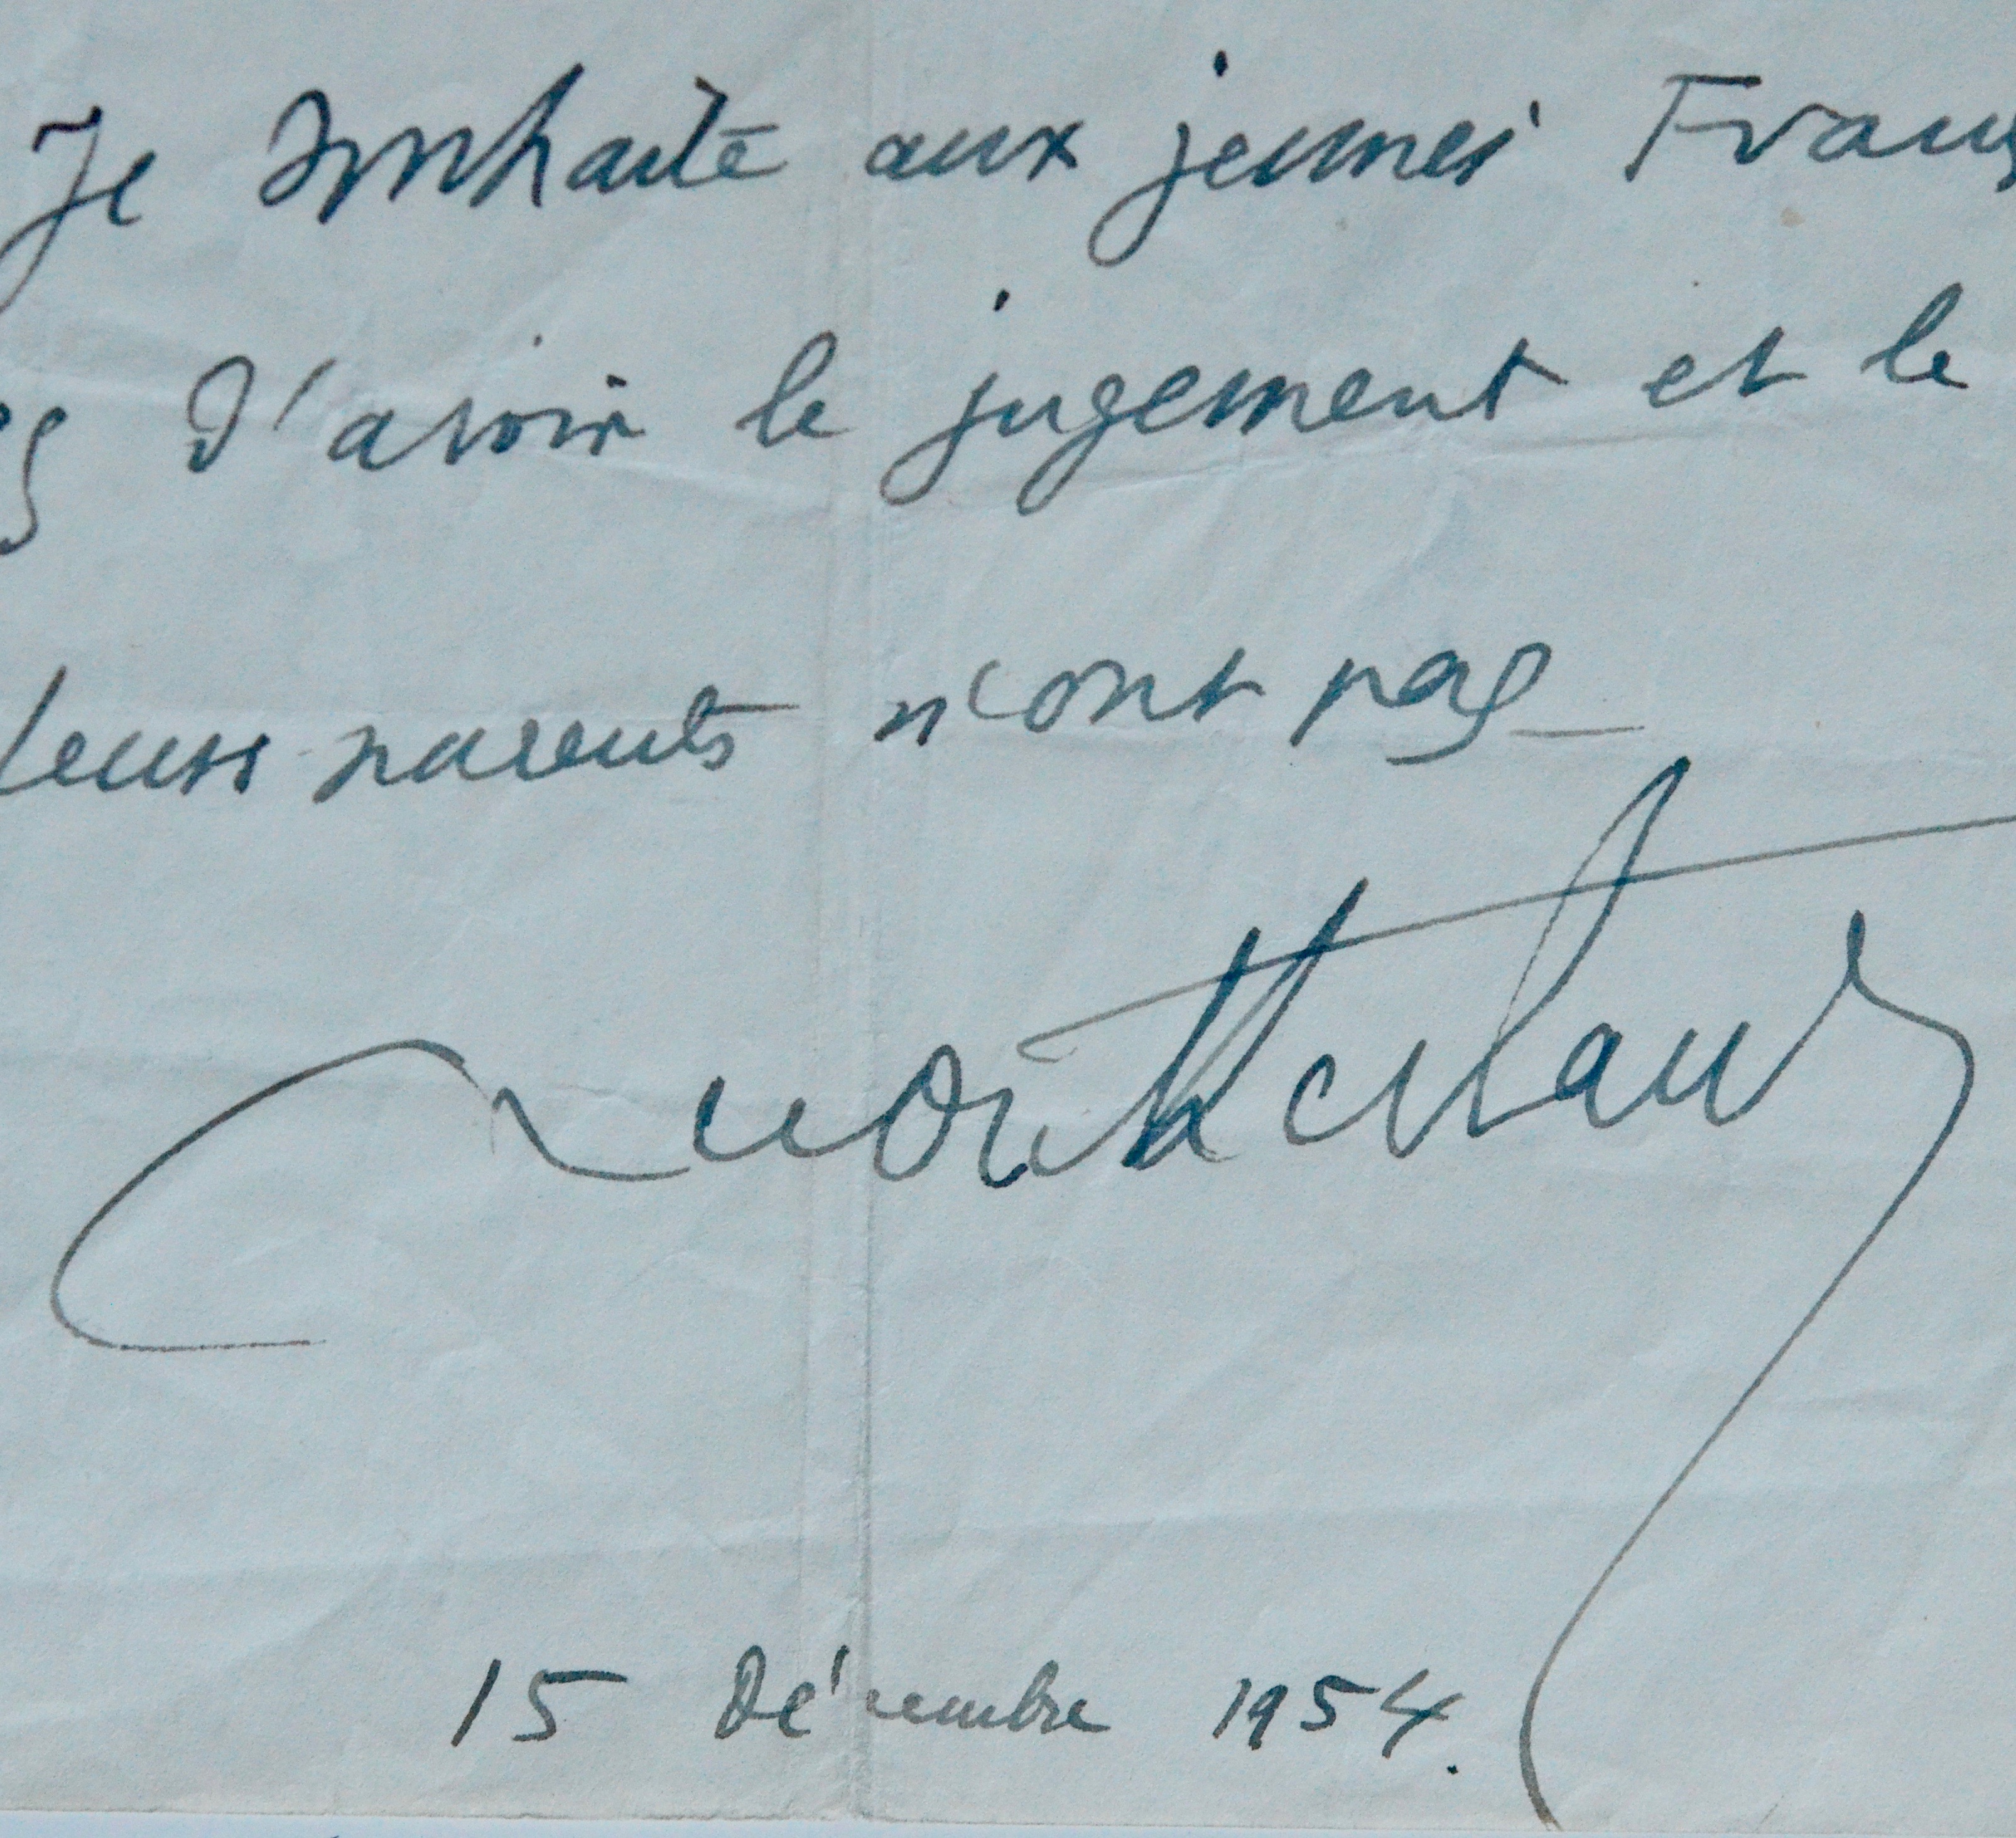 Je souhaite aux jeunes Franç
es d'avoir le jugement et le
leurs parents n'ont pas
Montherlant
15 Décembre 1954.